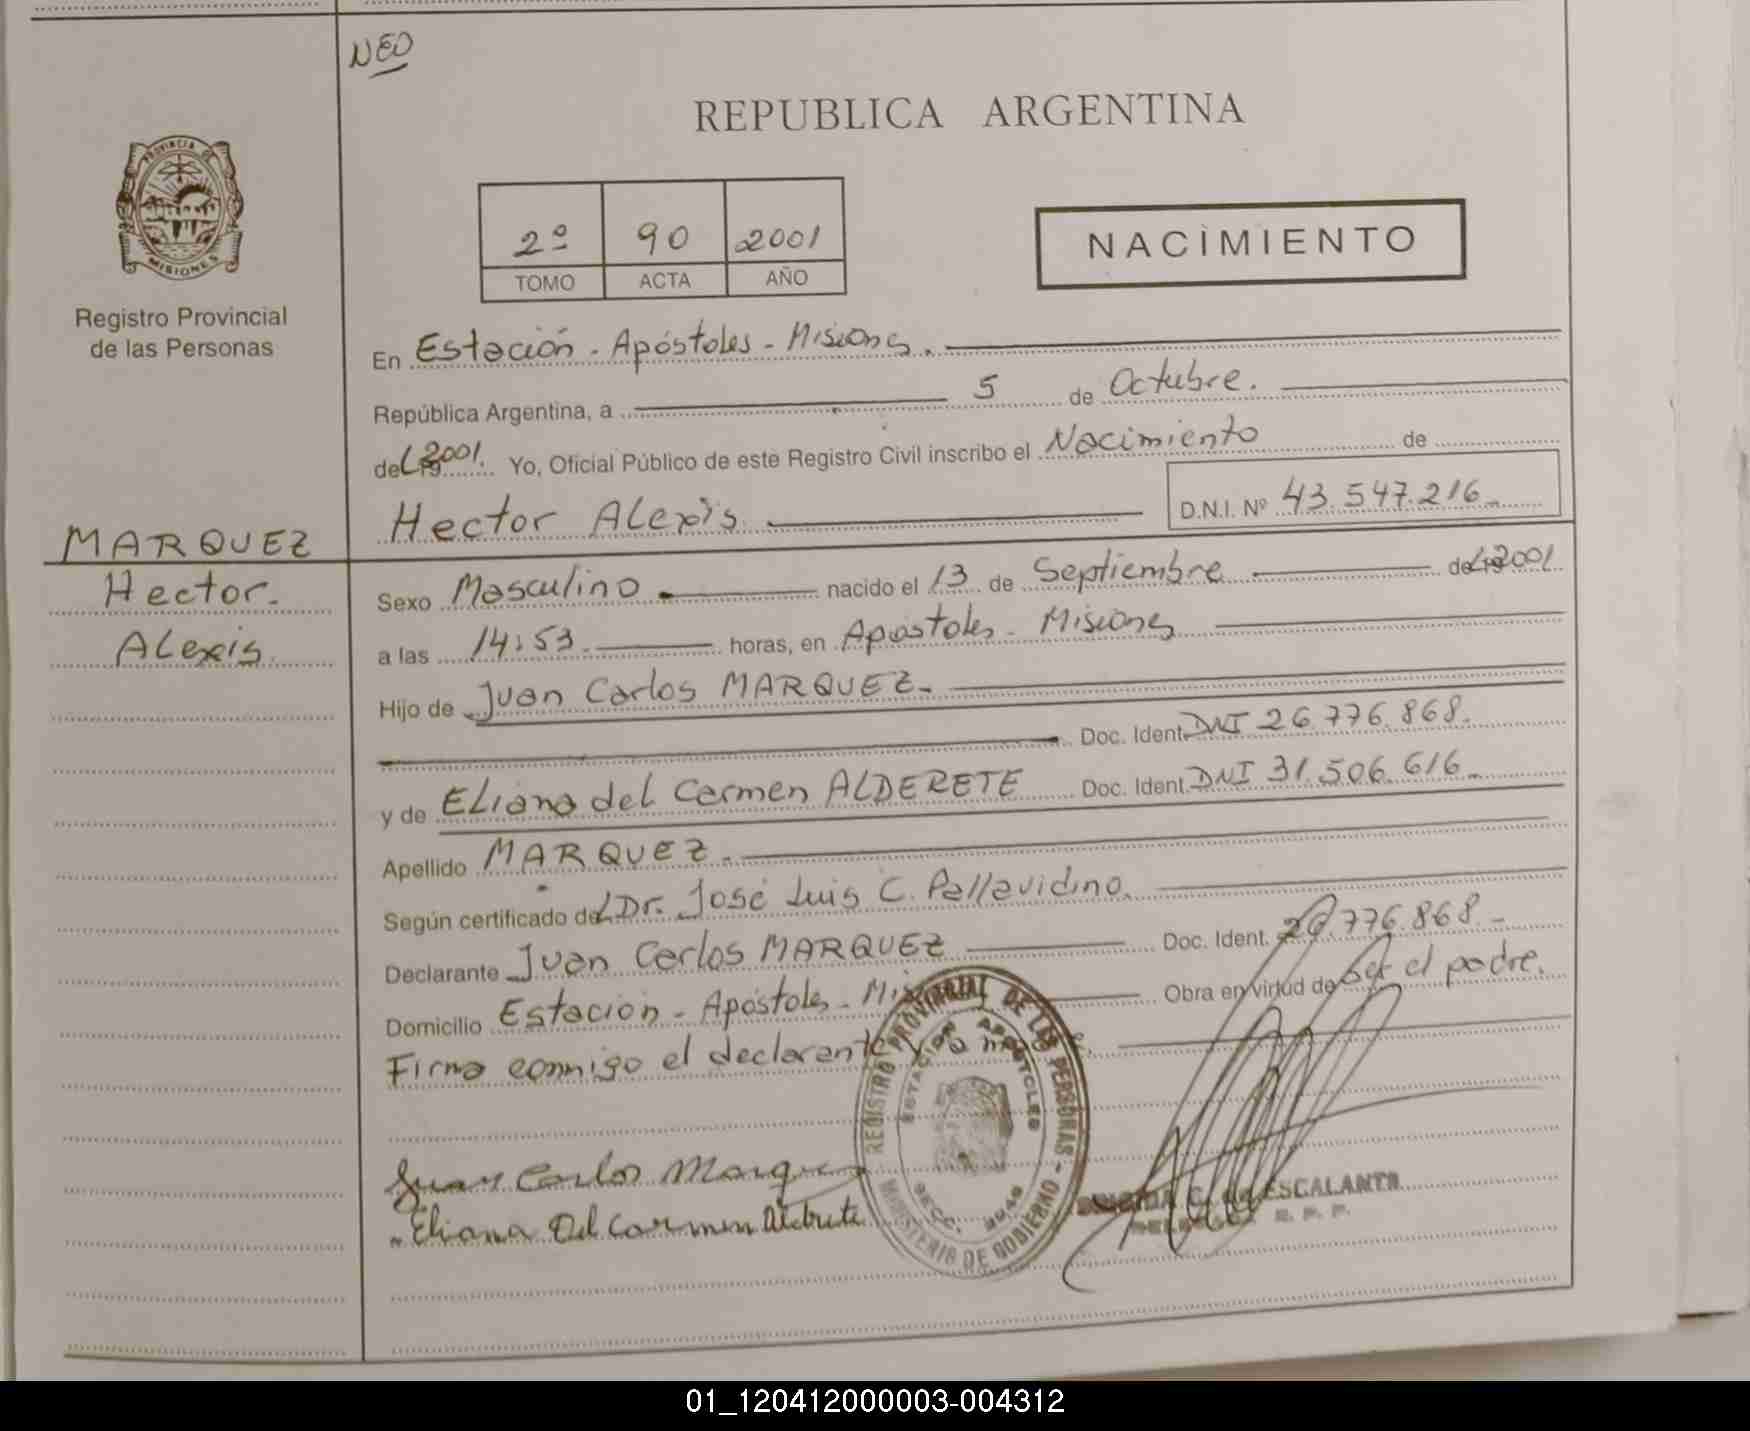 NEO
REPUBLICA ARGENTINA
PROVINCIA DE
MISIONES
Registro Provincial
de las Personas
2º 90 2001
TOMO ACTA AÑO
NACIMIENTO
En Estación - Apóstoles - Misiones.
República Argentina, a 5 de Octubre.
de 2001. Yo, Oficial Público de este Registro Civil inscribo el Nacimiento de
Hector Alexis. D.N.I. Nº 43.547.216
MARQUEZ
Hector.
Alexis
Sexo Masculino nacido el 13 de Septiembre de 2001
a las 14:53 horas, en Apostoles - Misiones
Hijo de Juan Carlos MARQUEZ.
Doc. Ident. DNI 26.776.868.
y de Eliana del Carmen ALDERETE Doc. Ident. DNI 31.506.616
Apellido MARQUEZ.
Según certificado de Dr. José Luis C. Pallavidino.
Declarante Juan Carlos MARQUEZ Doc. Ident. 26.776.868
Domicilio Estación - Apóstoles - Obra en virtud de ser el padre.
Firma conmigo el declarante y la
Juan Carlos Marquez
Eliana Del Carmen Alderete
REGISTRO PROVINCIAL DE LAS PERSONAS - MINISTERIO DE GOBIERNO
ESTACION APOSTOLES
SECC.
C. de ESCALANTE
01_120412000003-004312